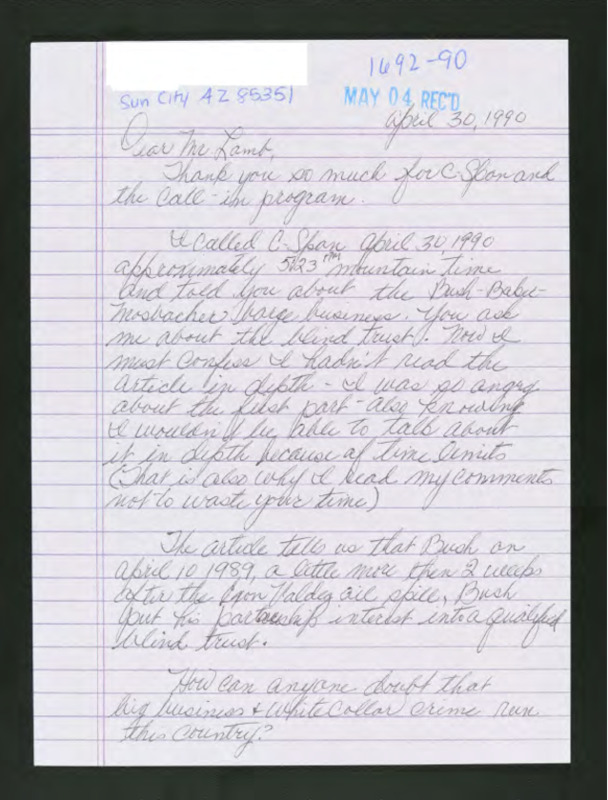 1692-90
Sun City AZ 85351
MAY 04 REC'D
April 30, 1990
Dear Mr Lamb,
Thank you so much for C-Span and
the call-in program.
I called C-Span April 30, 1990
approximately 5:23 PM mountain time
and told you about the Bush-Baker-
Mosbacher barge business. You ask
me about the blind trust. Now I
must confess I hadn't read the
article in depth - I was so angry
about the first part - also knowing
I wouldn't be able to talk about
it in depth because of time limits
(That is also why I read my comments
not to waste your time)
The article tells us that Bush on
April 10 1989, a little more then 2 weeks
after the Exon Valdez oil spill, Bush
put his partnership interest into a qualified
blind trust.
How can anyone doubt that
big business & white collar crime run
this country?